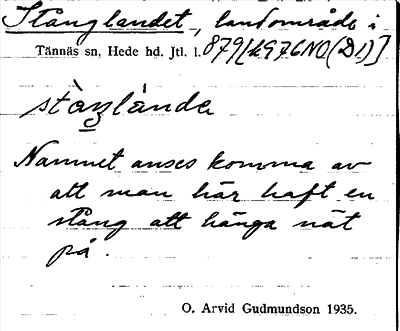 Stånglandet, landområde i
Tännäs sn, Hede hd. Jtl. l. 879[4976NO(D1)]
stàŋlánde
Namnet anses komma av
att man här haft en
stång att hänga nät
på.
O. Arvid Gudmundson 1935.